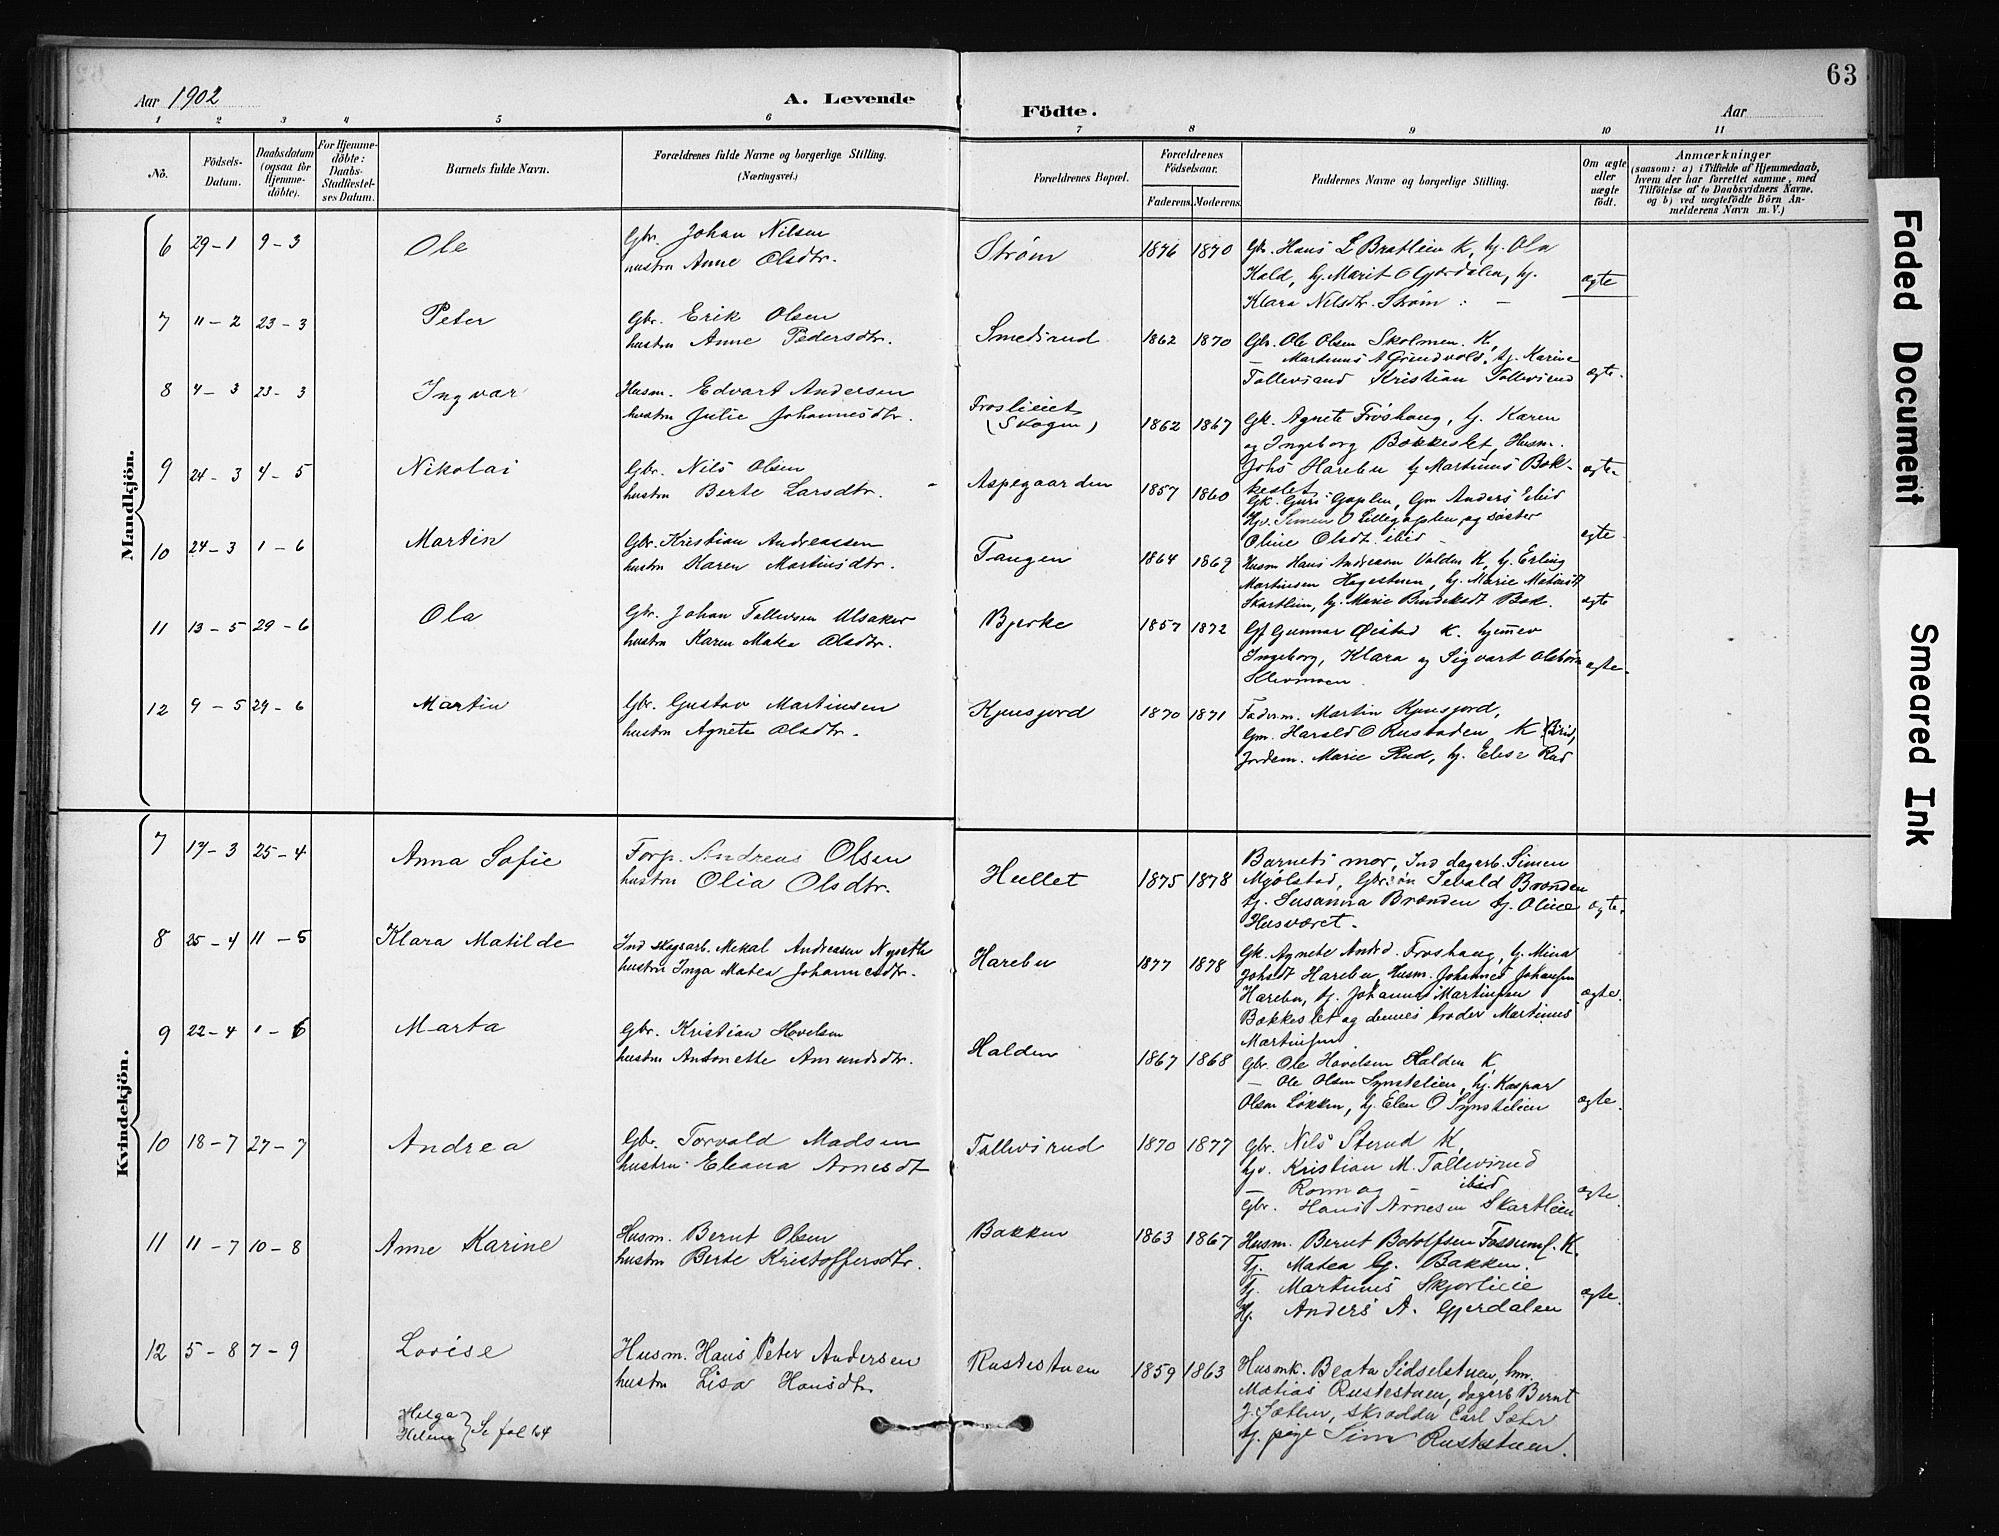 63
Aar 1902
A. Levende
Födte.
Aar
1 2 3 4 5 6 7 8 9 10 11
Nô.
Födsels-Datum.
Daabsdatum (ogsaa for Hjemme-döbte).
For Hjemme-döbte: Daabs-Stadfæstel-ses Datum.
Barnets fulde Navn.
Forældrenes fulde Navne og borgerlige Stilling.
(Næringsvei.)
Forældrenes Bopæl.
Forældrenes Födselsaar.
Faderens. Moderens.
Faddernes Navne og borgerlige Stilling.
Om ægte eller uægte födt.
Anmærkninger
(saasom: a) i Tilfælde af Hjemmedaab, hvem der har forrettet samme, med Tilföielse af to Daabsvidners Navne. og b) ved uægtefödte Börn An-melderens Navn m. V.)
Mandkjön.
6 29-1 9-3 Ole
Gbr. Johan Nilsen
hustru Anne Olsdtr.
Strøm 1876 1870
Gbr. Hans L Bratlien K, hj. Ola
Hald, hj. Marit O Gjerdalen, hj.
Klara Nilsdtr. Strøm : -
ægte
7 11-2 23-3 Peter
Gbr. Erik Olsen
hustru Anne Pedersdtr.
Smedsrud 1862 1870
Gbr. Ole Olsen Skolmen. K,
- Martinus A Grundvold, hj. Karine
Tollevsrud Kristian Tollevsrud
ægte.
8 4-3 23-3 Ingvar
Husm. Edvart Andersen
hustru Julie Johannesdtr.
Froslieiet
(Skogen) 1862 1867
Gk. Agnete Frøshaug, hj. Karen
og Ingeborg Bakkeslet, Husm.
Johs Harebu hj Martinus Bak-
keslet
ægte.
9 24-3 4-5 Nikolai
Gbr. Nils Olsen
hustru Berte Larsdtr.
Aspegaarden 1857 1860
Gk. Guri Gaplen, Gm Anders ibid
Hjv. Simen O Lillegaplen og søster
Oline Olsdt. ibid -
ægte
10 24-3 1-6 Martin
Gbr. Kristian Andreassen
hustru Karen Martinsdtr.
Tangen 1864 1869
Husm Hans Andreasen Volden K, hj. Erling
Martinsen Hagestuen, hj. Marie
Skartlien, hj. Marie Bak.
ægte
11 13-5 29-6 Ola
Gbr. Johan Tollevsen Ulsaker
hustru Karen Matea Olsdtr.
Bjerke 1857 1872
Gf Gunnar Øistad K. hjemmev
Ingeborg, Klara og Sigvart Olsbørn
ægte.
12 9-5 29-6 Martin
Gbr. Gustav Martinsen
hustru Agnete Olsdtr.
Kjensjord 1870 1871
Faderm. Martin Kjensjord,
Gm. Harald O Rustaden, K (Biri),
Jordem. Marie Rud, hj. Elise Rud
Kvindekjön.
7 17-3 25-4 Anna Sofie
Forp. Andreas Olsen
hustru Olia Olsdtr.
Hullet 1875 1878
Barnets mor, Ind dagarb. Simen
Mjølstad, Gbr.søn Sevald Brænden
hj. Susanna Brænden hj. Oline
Husværet.
ægte.
8 25-4 11-5 Klara Matilde
Ind skogsarb. Mikal Andreasen Nyseth
hustru Inga Matea Johannesdtr.
Harebu 1877 1878
Gk. Agnete Antrd. Froshaug, hj. Mina
Johsdt Harebu, Husm. Johannes Johansen
Harebu, hj. Johannes Martinsen
Bakkeslet og dennes broder Martinus
Martinsen
ægte.
9 22-4 1-6 Marta
Gbr. Kristian Hovelsen
hustru Antonette Amundsdtr.
Halden 1867 1868
Gbr. Ole Hovelsen Halden K
- Ole Olsen Synstelien, hj. Kaspar
Olsen Løkken, hj. Elen O Synstelien
ægte.
10 18-7 27-7 Andrea
Gbr. Torvald Madsen
hustru Eleana Arnesdt
Tollevsrud 1870 1877
Gbr. Nils Sterud K,
hjv. Kristian M. Tollevsrud
- Ronnag - ibid
Gbr. Hans Arnesen Skartlien
ægte.
11 11-7 10-8 Anne Karine
Husm. Bernt Olsen
hustru Berte Kristoffersdtr.
Bakken 1863 1867
Husm. Bernt Botolfsen Fossum f. K.
Tj. Matea G. Bakken.
Tj. Martinus Skjorlieie
Hj. Anders A. Gjerdalen
ægte.
12 5-8 7-9 Lovise
Husm. Hans Peter Andersen
hustru Lisa Hansdtr.
Rustestuen 1859 1863
Husmk. Beata Sidselstuen, hm.
Matias Rustestuen, dagarb Bernt
J. Sæthre, skrædder Carl Sæter
hj. pige Rustestuen.
Helga
Helene } Se fol 64
Faded Document
Smeared Ink